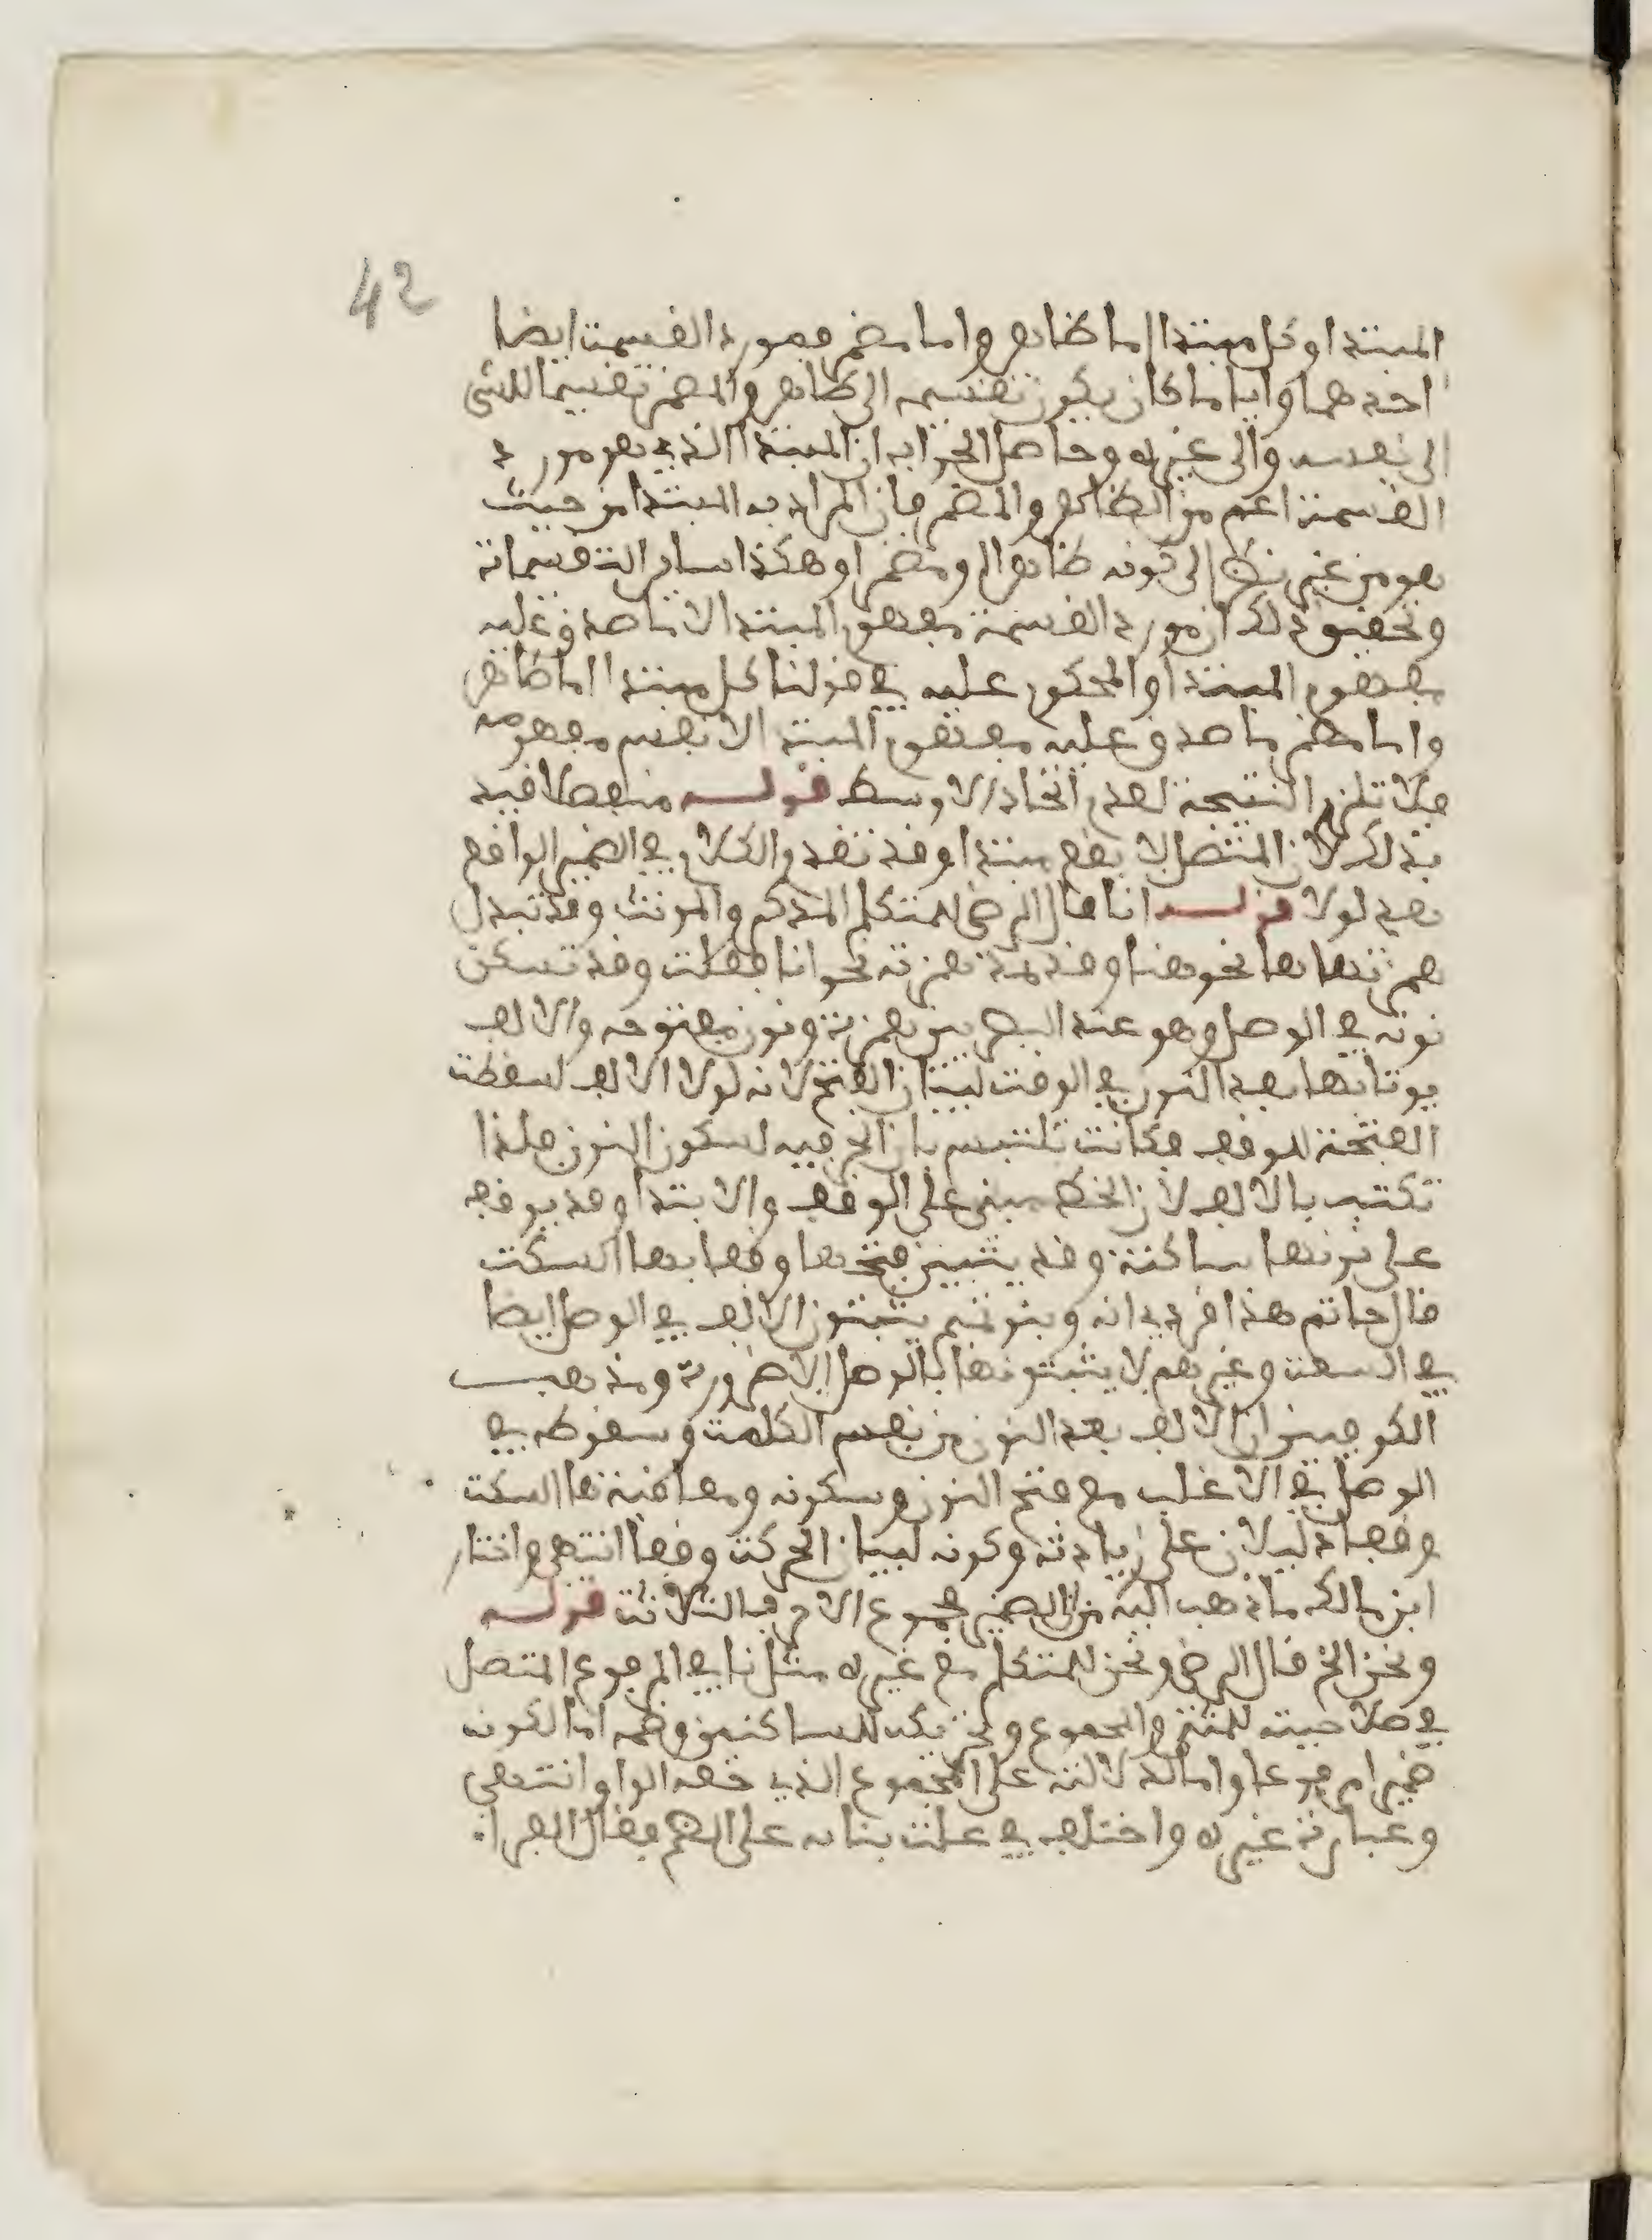 42
المبتدا وكل مبتدا اما ظاهر واما مضمر فمورد القسمة ايضا
احدهما وايا ما كان يكون تقسيمه الى ظاهر والمضمر تقسيما للشى
الى نفسه والى غيره وحاصل الجواب ان المبتدا الذي هو مورد
القسمة اعم من الظاهر والمضمر فان المراد به المبتدا من حيث
هو من غير نظر الى كونه ظاهرا ومضمرا وهكذا ساير التقسيمات
وتحقيق ذلك ان مورد القسمة مفهوم المبتدا لا ما صدق عليه
مفهوم المبتدا والمحكوم عليه في قولنا كل مبتدا اما ظاهر
واما مضمر ما صدق عليه مفهوم المبتدا لا نفس مفهومه
فلا تلزم النتيجة لعدم اتحاد الاوسط قوله منفصلا قيد
بذلك لان المتصل لا يقع مبتدا وقد تقدم الكلام في الضمير الواقع
بعد لولا قوله انا قال الرضى للمتكلم المذكر والمونث وقد تبدل
همزتها ها نحو هنا وقد تمد همزته نحو انا فعلت وقد تسكن
نونه في الوصل وهو عند البصريين همزة ونون مفتوحه والالف
يوتا بها بعد النون في الوقف لبيان الفتح لانه لولا الالف لسقطت
الفتحة للوقف فكانت تلتبس بان الحرفيه لسكون النون فلذا
تكتب بالالف لان الخط مبنى على الوقف والابتدا وقد يوقف
على نونها ساكنة وقد يتبين فتحها وقفا بها السكت
قال حاتم هذا فردى انه وبنو تميم يثبتون الالف في الوصل ايضا
في السعت وغيرهم لا يثبتونها بالوصل الا ضرورة ومذهب
الكوفيين ان الالف بعد النون من نفس الكلمة وسقوطه في
الوصل في الاغلب مع فتح النون وسكونه ومعاقبة ها السكت
وقفا دليلان على زيادته وكونه لبيان الحركت وقفا انتهى واختار
ابن مالك ما ذهب اليه من ان الضمير مجموع الاحرف الثلاثت قوله
ونحن الخ قال الرضى ونحن للمتكلم مع غيره مثل نا في المرفوع المتصل
في صلاحيته للمثنى والمجموع وتحريكه للساكنين وضمه اما لكونه
ضميرا مرفوعا واما لدلالته على المجموع الذي حقه الواو انتهى
وعبارة غيره واختلف في علت بنائه على الضم فقال الفرا